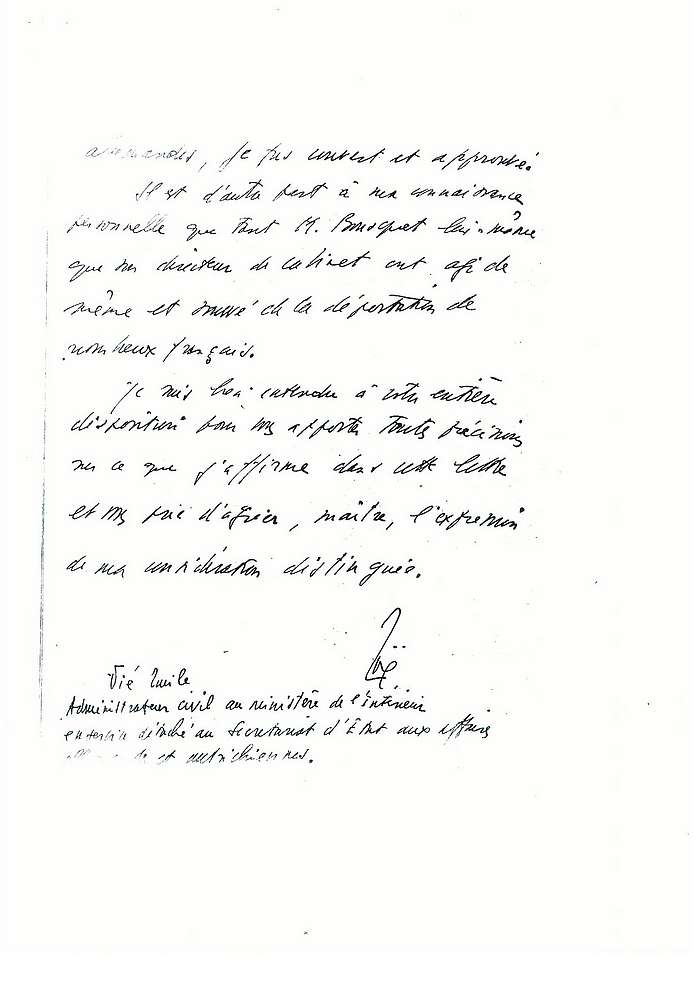 allemandes, je fus couvert et approuvé.
Il est d'autre part à ma connaissance
personnelle que tant M. Bousquet lui-même
que son directeur de cabinet ont agi de
même et sauvé de la déportation de
nombreux français.
Je suis bien entendu à votre entière
disposition pour vous apporter toutes précisions
sur ce que j'affirme dans cette lettre
et vous prie d'agréer, maître, l'expression
de ma considération distinguée.
Vié
Vié Emile
Administrateur civil au ministère de l'intérieur
en service détaché au Secretariat d'Etat aux affaires
allemandes et autrichiennes.